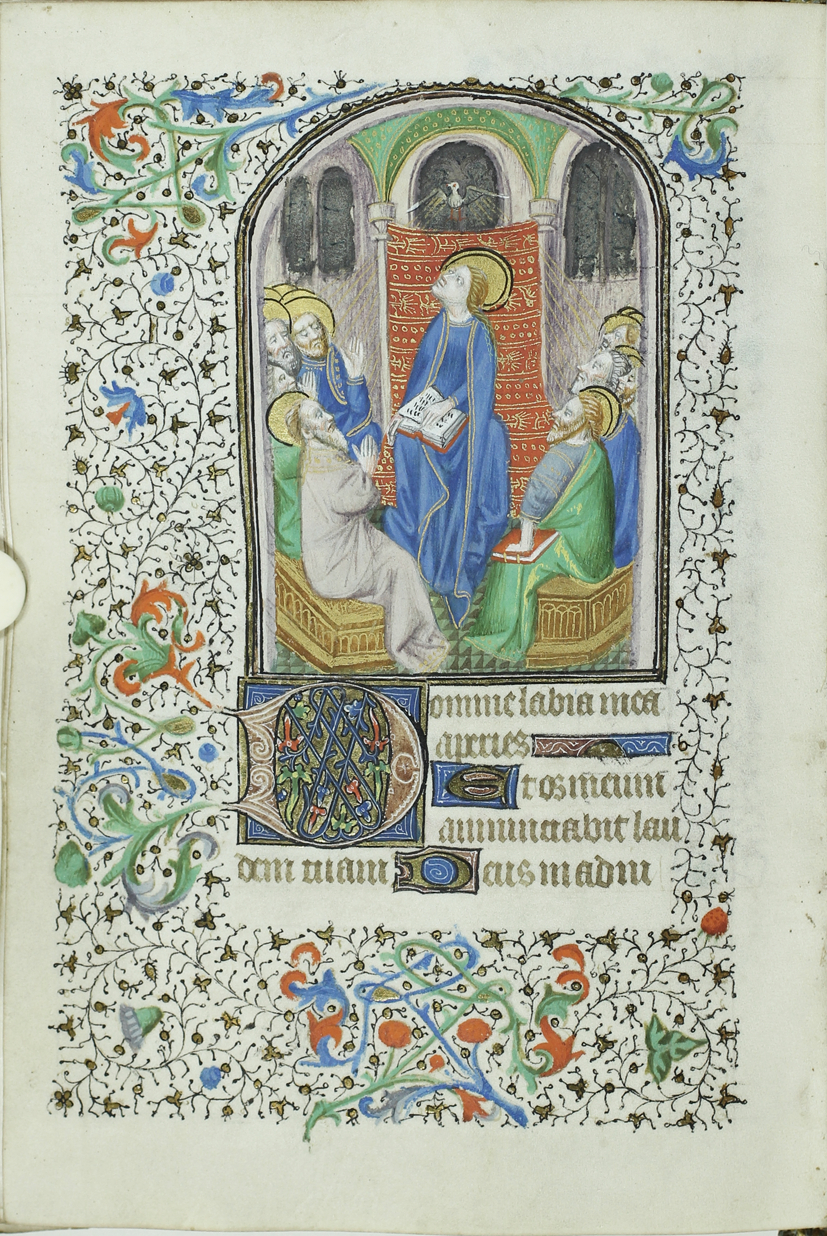 Domine labia mea
aperies
Et os meum
annunciabit lau
dem tuam Deus in adiu